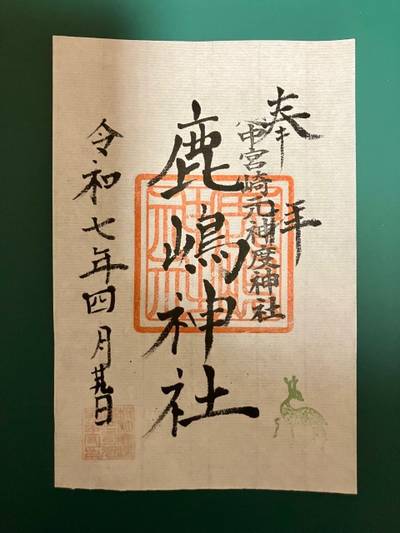 奉拝
宮崎元神度神社
鹿嶋神社
令和七年四月日